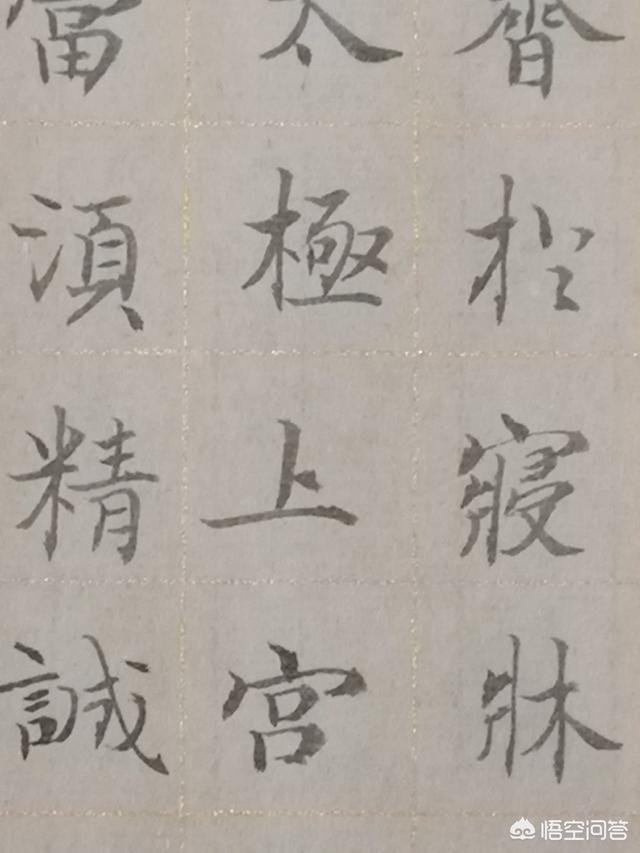 於寢牀
太極上宮
當湏精誠
悟空问答